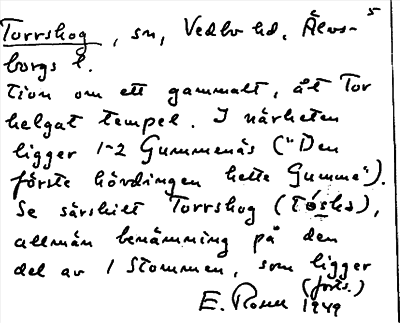 5
Torrskog, sn, Vedbo hd, Älvs-
borgs l.
Tion om ett gammalt, åt Tor
helgat tempel. I närheten
ligger 1-2 Gummenäs ("Den
förste hövdingen hette Gumme").
Se särskilt Torrskog (tɷ́sks),
allmän benämning på den
del av 1 Stommen, som ligger
(forts.)
E. Rosell 1949